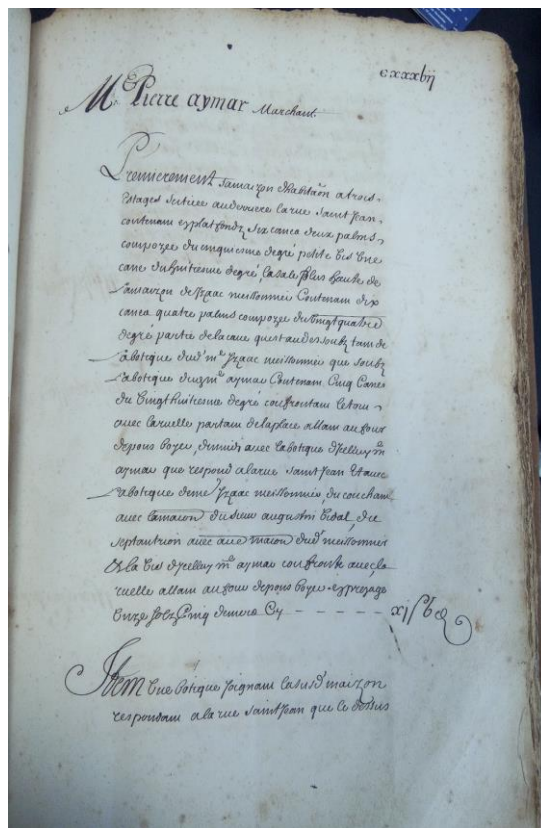 cxxxbij
Me Pierre aymar Marchant.
Premierement sa maizon dhabitaon a trois
estages scituee au derriere la rue saint Jean
contenant en plat fondz six canes deux palms
compozee du cinquiesme degré petite bis une
cane du huitiesme degré, la sale plus haute de
la maizon de Izaac meissonnier Contenant dix
canes quatre palms compozee du vingt quatre
degré partie de la cave quest au dessoubz tant de
la botique dud' me Izaac meissonnier que soubz
la botique dud me aymar Contenant Cinq Canes
du vingt huitiesme degré confrontant le tout
avec la ruelle partant de la place allant au four
de pons boyer, de midi avec la botique dicelluy me
aymar que respond a la rue saint Jean et avec
la botique de me Izaac meissonnier, du couchant
avec la maizon du sieur augustin vidal, du
septantrion avec autre maizon dud' meissonnier
et la bis dicelluy me aymar confronte avec la
ruelle allant au four de pons boyer expreza
unze solz Cinq deniers Cy - - - - - xj s b d
Item une botique joignant la susd' maizon
respondant a la rue saint Jean que le dessus